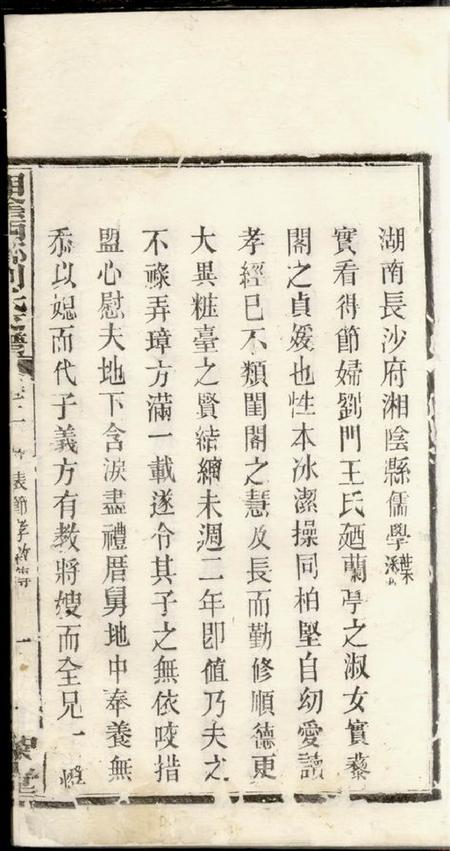 湖南長沙府湘陰縣儒學葉
實看得節婦劉門王氏廼蘭亭之淑女實藜
閣之貞媛也性本冰潔操同柏堅自幼愛讀
孝經已不類閨閣之慧及長而勤修順德更
大異粧臺之賢結縭未週二年即值乃夫之
不祿弄璋方滿一載遂令其子之無依咬措
盟心慰夫地下含淚盡禮厝舅地中奉養無
忝以媳而代子義方有教將嫂而全兄一燈
卷二 表節孝